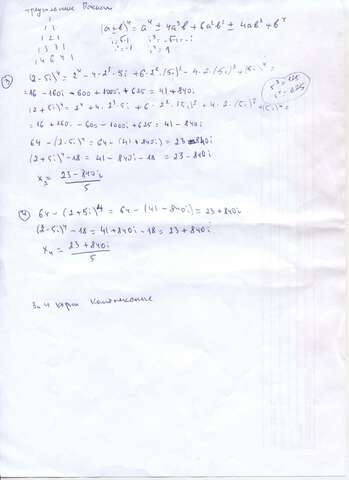 треугольник Паскаля
1
1 1
1 2 1
1 3 3 1
1 4 6 4 1
(a±b)⁴ = a⁴ ± 4a³b + 6a²b² ± 4ab³ + b⁴
i² = -1 i⁴ = 1
③ (2-5i)⁴ = 2⁴ - 4·2³·5i + 6·2²·(5i)² - 4·2·(5i)³ + (5i)⁴ =
= 16 - 160i - 600 + 1000i + 625 = 41 + 840i
(2+5i)⁴ = 2⁴ + 4·2³·5i + 6·2²·(5i)² + 4·2·(5i)³ + (5i)⁴ =
= 16 + 160i - 600 - 1000i + 625 = 41 - 840i
64 - (2-5i)⁴ = 64 - (41 + 840i) = 23 - 840i
(2+5i)⁴ - 18 = 41 - 840i - 18 = 23 - 840i
x₃ = (23 - 840i)/5
④ 64 - (2+5i)⁴ = 64 - (41 - 840i) = 23 + 840i
(2-5i)⁴ - 18 = 41 + 840i - 18 = 23 + 840i
x₄ = (23 + 840i)/5